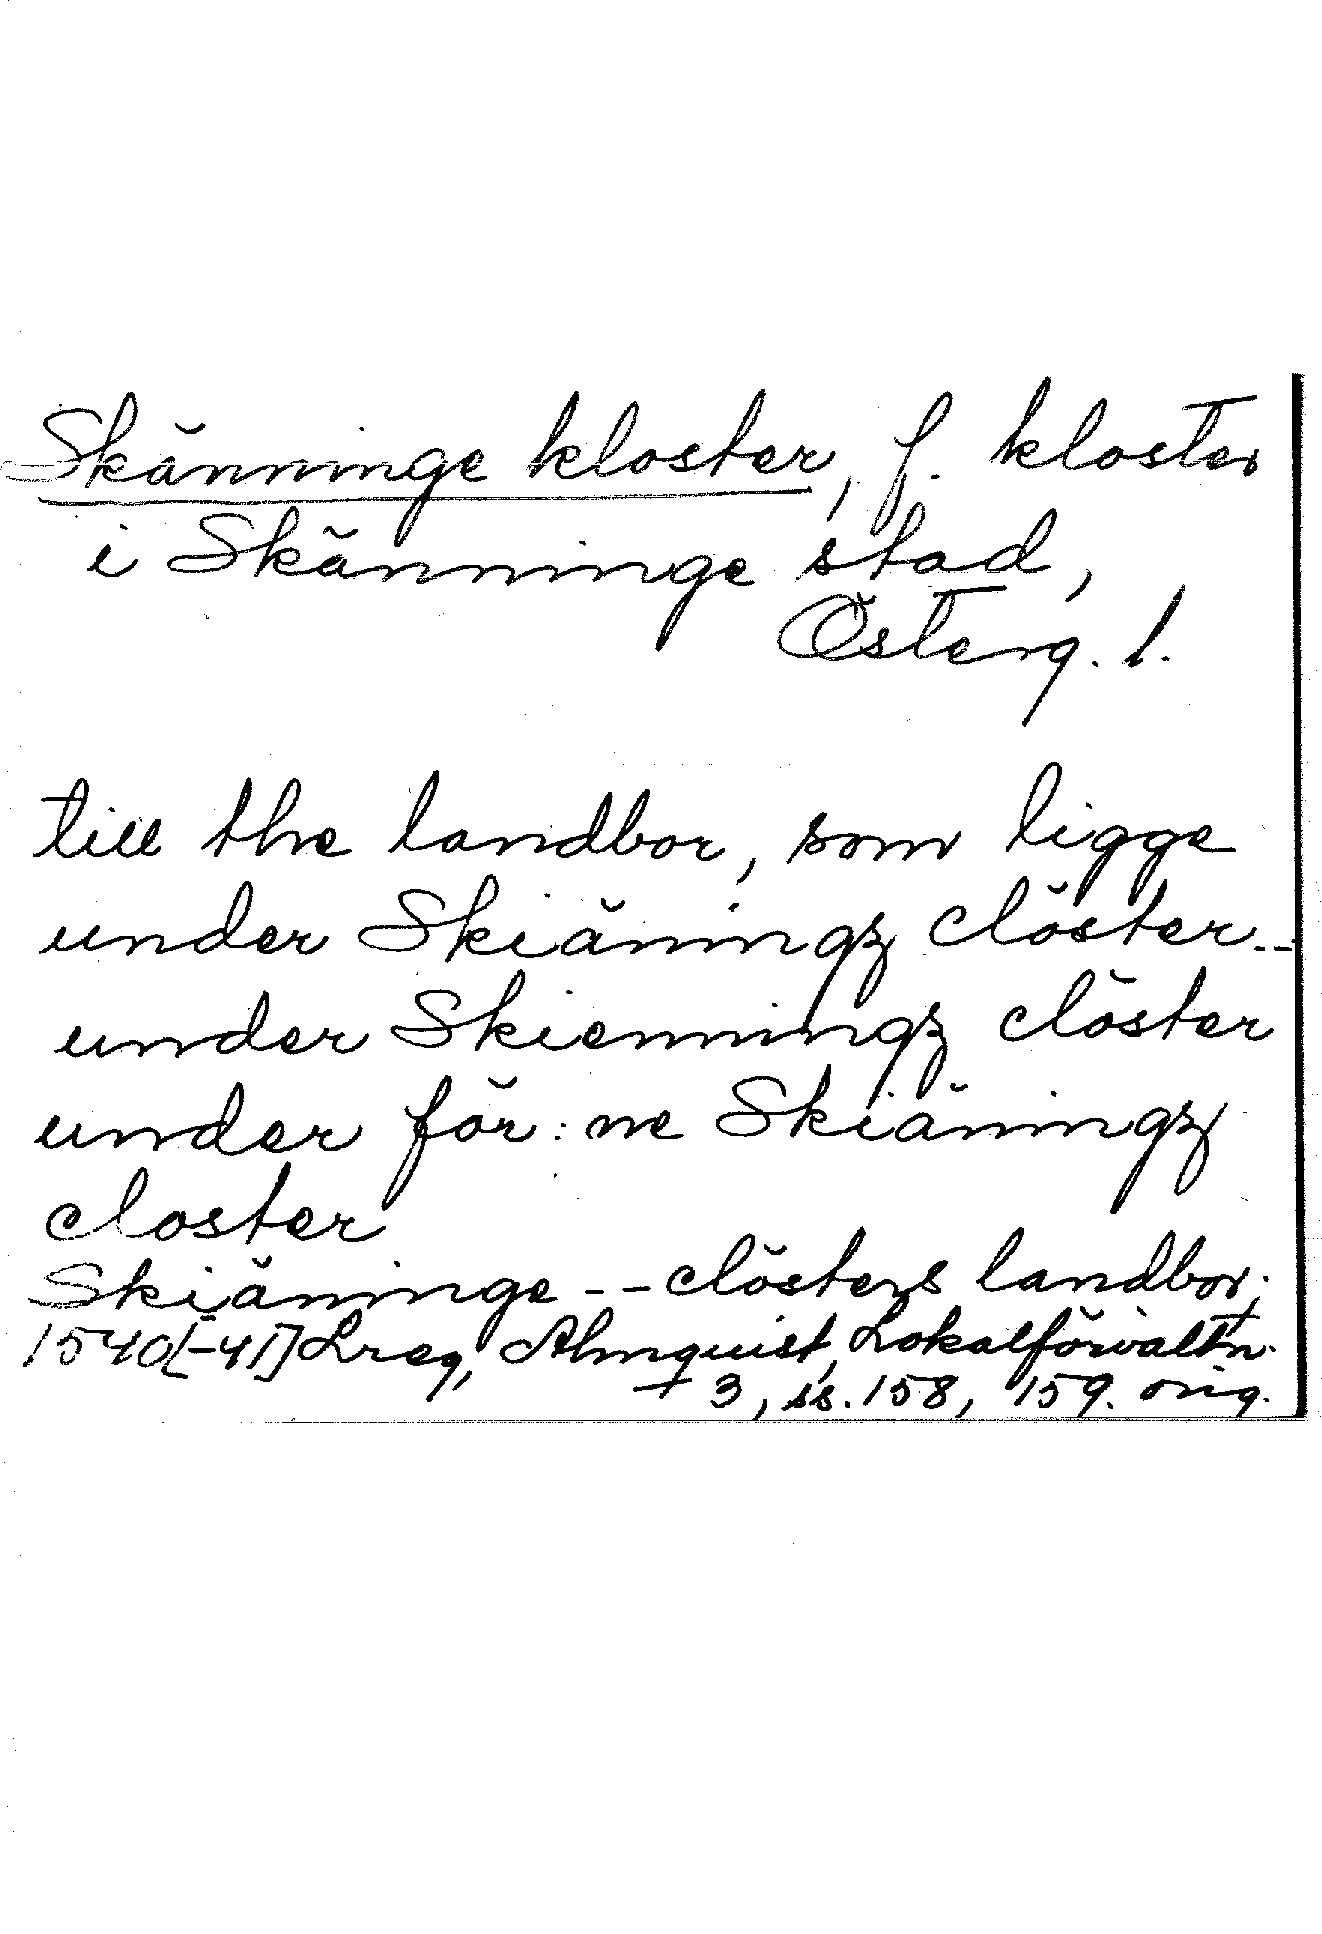 Skänninge kloster, f. kloster
i Skänninge stad,
Österg. l.
till the landbor, som ligge
under Skiäningz clöster --
under Skienningz clöster
under för: ne Skiäningz
closter
Skiäninge -- clösters landbor;
1540[-41] Lreg, Almquist, Lokalförvaltn.
3, ss. 158, 159. orig.